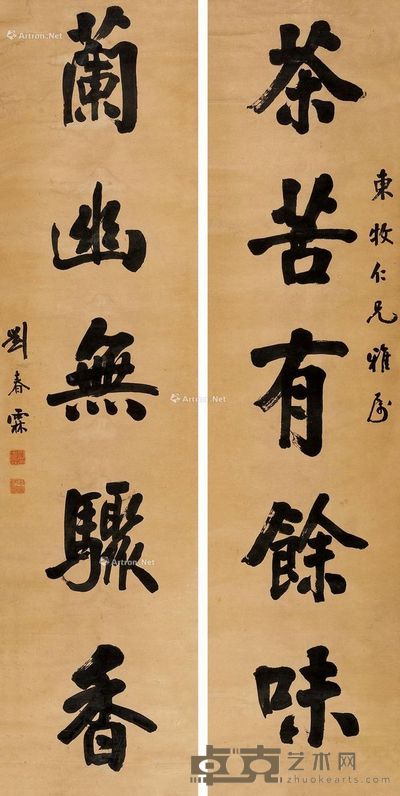 東牧仁兄雅屬
茶苦有餘味
蘭幽無驟香
劉春霖
Artron.Net
Artron.Net
Artron.Net
Artron.Net
卓克艺术网
zhuokearts.com